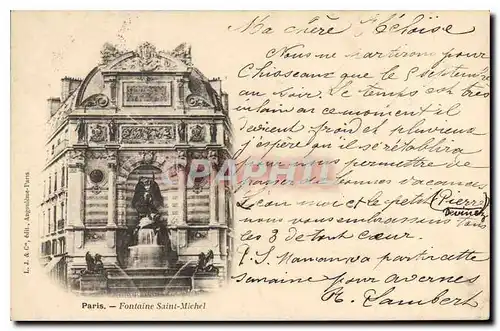 Ma chère Héloïse
Nous ne partirons pour
Chisseaux que le 5 septembre
au soir. Le temps est très
vilain en ce moment il
devient froid et pluvieux
j'espère qu'il se rétablira
pour nous permettre de
passer de bonnes vacances
Léon moi et le petit (Pierre)
nous vous embrassons tous
devinez
les 3 de tout cœur.
P.S. Maman va partir cette
semaine pour
H. Lambert
L. J. & Cie, édit., Angoulême-Paris
Paris. — Fontaine Saint-Michel
CARTORUM